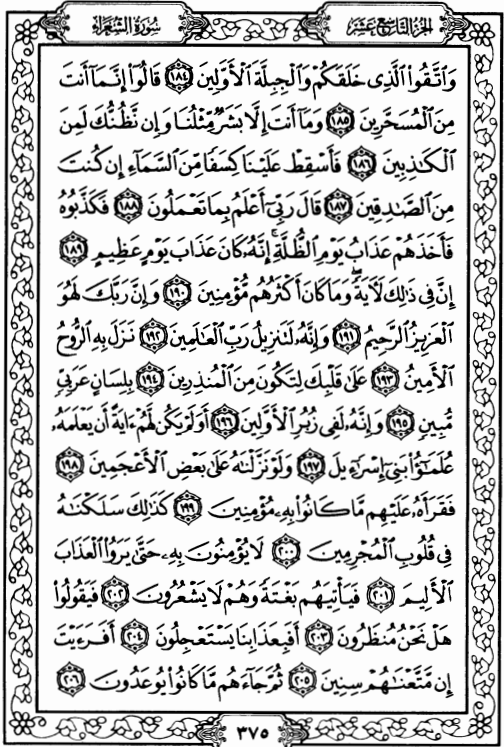 الجزء التاسع عشر
سورة الشعراء
وَٱتَّقُوا۟ ٱلَّذِى خَلَقَكُمْ وَٱلْجِبِلَّةَ ٱلْأَوَّلِينَ ١٨٤ قَالُوٓا۟ إِنَّمَآ أَنتَ
مِنَ ٱلْمُسَحَّرِينَ ١٨٥ وَمَآ أَنتَ إِلَّا بَشَرٌ مِّثْلُنَا وَإِن نَّظُنُّكَ لَمِنَ
ٱلْكَٰذِبِينَ ١٨٦ فَأَسْقِطْ عَلَيْنَا كِسَفًا مِّنَ ٱلسَّمَآءِ إِن كُنتَ
مِنَ ٱلصَّٰدِقِينَ ١٨٧ قَالَ رَبِّىٓ أَعْلَمُ بِمَا تَعْمَلُونَ ١٨٨ فَكَذَّبُوهُ
فَأَخَذَهُمْ عَذَابُ يَوْمِ ٱلظُّلَّةِ ۚ إِنَّهُۥ كَانَ عَذَابَ يَوْمٍ عَظِيمٍ ١٨٩
إِنَّ فِى ذَٰلِكَ لَءَايَةً ۖ وَمَا كَانَ أَكْثَرُهُم مُّؤْمِنِينَ ١٩٠ وَإِنَّ رَبَّكَ لَهُوَ
ٱلْعَزِيزُ ٱلرَّحِيمُ ١٩١ وَإِنَّهُۥ لَتَنزِيلُ رَبِّ ٱلْعَٰلَمِينَ ١٩٢ نَزَلَ بِهِ ٱلرُّوحُ
ٱلْأَمِينُ ١٩٣ عَلَىٰ قَلْبِكَ لِتَكُونَ مِنَ ٱلْمُنذِرِينَ ١٩٤ بِلِسَانٍ عَرَبِىٍّ
مُّبِينٍ ١٩٥ وَإِنَّهُۥ لَفِى زُبُرِ ٱلْأَوَّلِينَ ١٩٦ أَوَلَمْ يَكُن لَّهُمْ ءَايَةً أَن يَعْلَمَهُۥ
عُلَمَٰٓؤُا۟ بَنِىٓ إِسْرَٰٓءِيلَ ١٩٧ وَلَوْ نَزَّلْنَٰهُ عَلَىٰ بَعْضِ ٱلْأَعْجَمِينَ ١٩٨
فَقَرَأَهُۥ عَلَيْهِم مَّا كَانُوا۟ بِهِۦ مُؤْمِنِينَ ١٩٩ كَذَٰلِكَ سَلَكْنَٰهُ
فِى قُلُوبِ ٱلْمُجْرِمِينَ ٢٠٠ لَا يُؤْمِنُونَ بِهِۦ حَتَّىٰ يَرَوُا۟ ٱلْعَذَابَ
ٱلْأَلِيمَ ٢٠١ فَيَأْتِيَهُم بَغْتَةً وَهُمْ لَا يَشْعُرُونَ ٢٠٢ فَيَقُولُوا۟
هَلْ نَحْنُ مُنظَرُونَ ٢٠٣ أَفَبِعَذَابِنَا يَسْتَعْجِلُونَ ٢٠٤ أَفَرَءَيْتَ
إِن مَّتَّعْنَٰهُمْ سِنِينَ ٢٠٥ ثُمَّ جَآءَهُم مَّا كَانُوا۟ يُوعَدُونَ ٢٠٦
٣٧٥